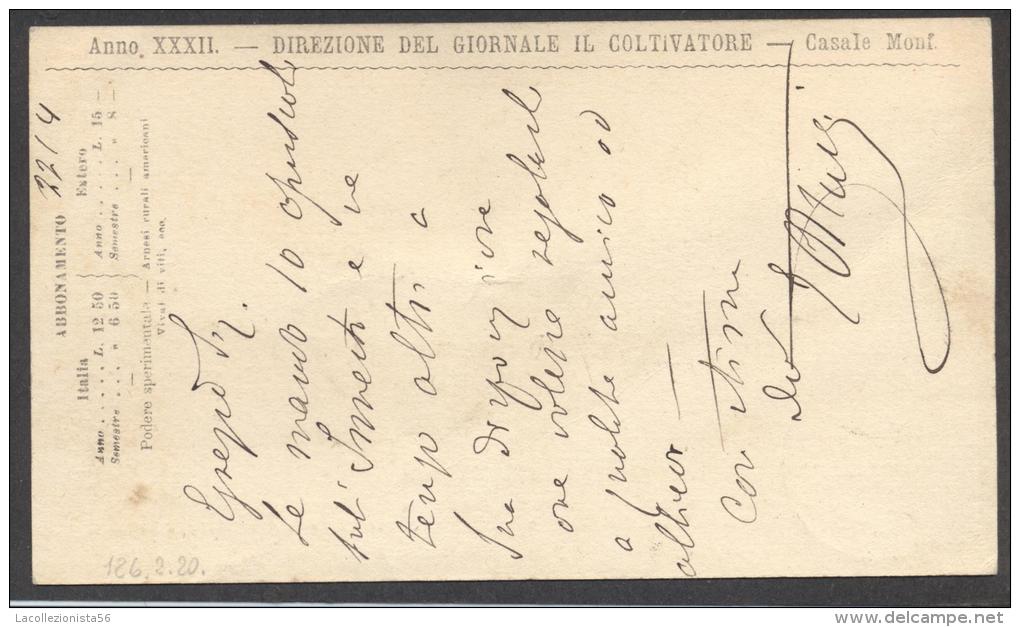 Anno XXXII. — DIREZIONE DEL GIORNALE IL COLTIVATORE — Casale Monf.
ABBONAMENTO 22/4
Italia
Anno . . . . . L. 12 50
Semestre . . . » 6 50
Estero
Anno . . . . . L. 15 —
Semestre . . . » 8 —
Podere sperimentale — Arnesi rurali americani
Vivai di viti, ecc.
Egregio Sig.
Le mando 10 opuscoli
sul' Innesto e ne
tengo altri a
Sua disposizione
ove volesse regalarli
a qualche amico od
allievo
con stima
126.2.20.
Lacollezionista56
http://www.delcampe.net